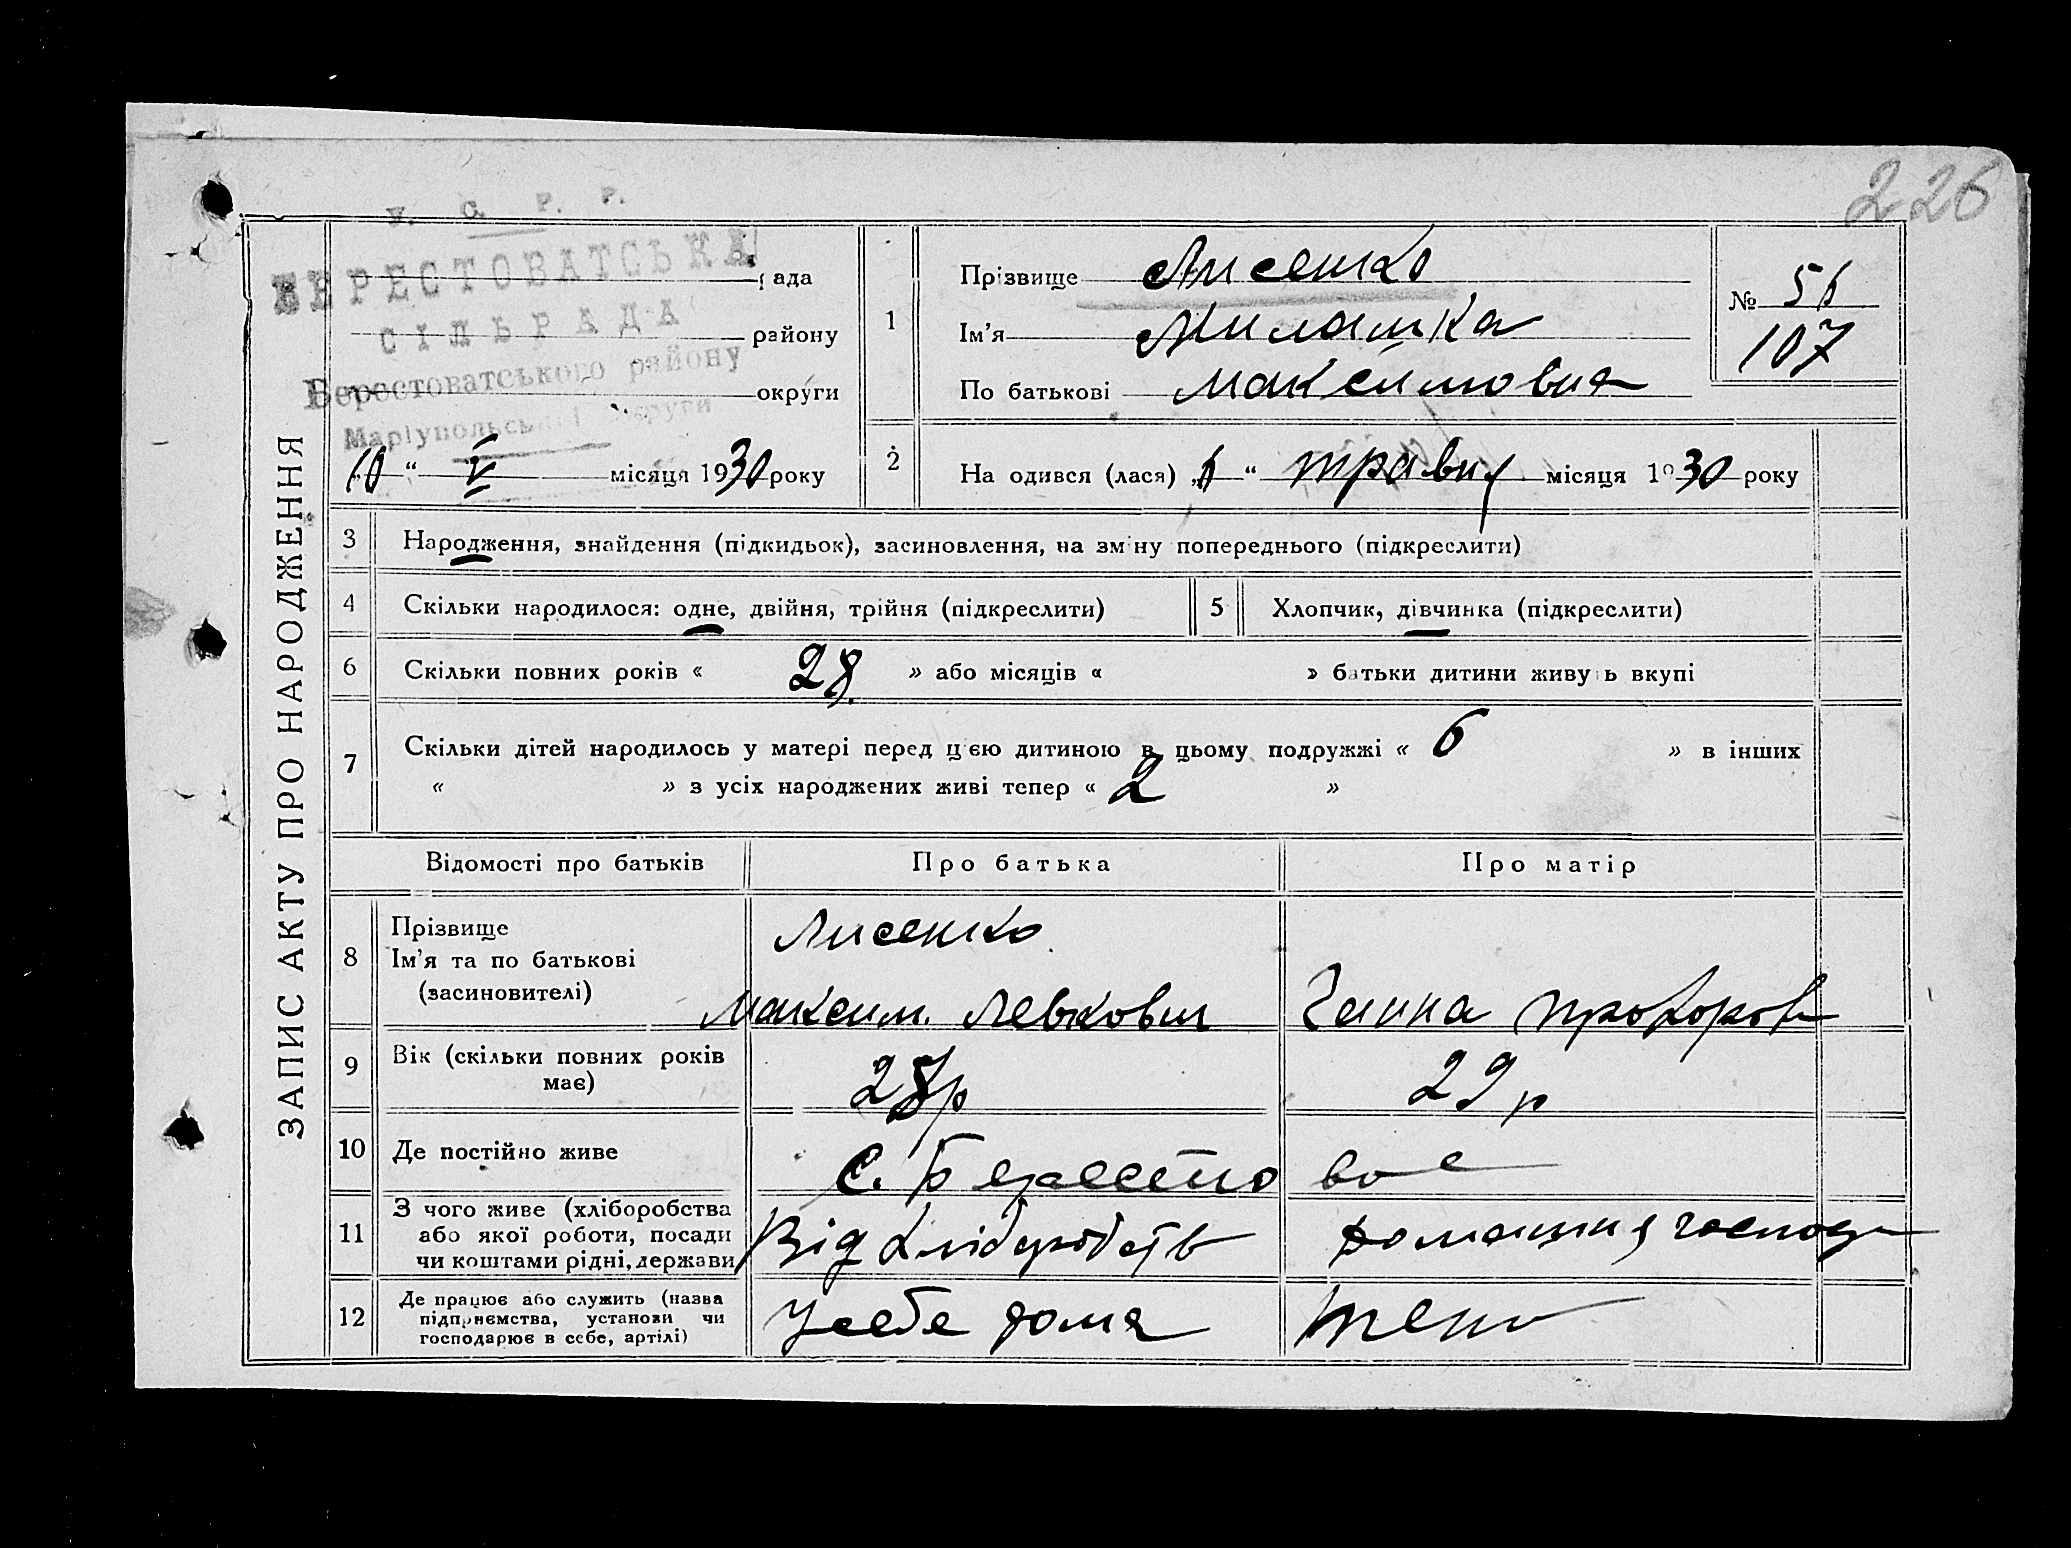 226
У. С. Р. Р.
БЕРЕСТОВАТСЬКА рада
СІЛЬРАДА району
Берестоватського району
Маріупольської округи округи
10 “ V місяця 1930 року
ЗАПИС АКТУ ПРО НАРОДЖЕННЯ
1 Прізвище Лисенко
Ім’я Милашка
По батькові Максимовна
№
107
2 На одився (лася) „ “ травня місяця 1930 року
3 Народження, знайдення (підкидьок), засиновлення, на зміну попереднього (підкреслити)
4 Скільки народилося: одне, двійня, трійня (підкреслити) 5 Хлопчик, дівчинка (підкреслити)
6 Скільки повних років « 28 » або місяців « » батьки дитини живуть вкупі
7 Скільки дітей народилось у матері перед цією дитиною в цьому подружжі « 6 » в інших
« » з усіх народжених живі тепер « 2 »
Відомості про батьків Про батька Про матір
8 Прізвище Лисенко
Ім’я та по батькові
(засиновителі) Максим. Левкович Ганна Прохоров
9 Вік (скільки повних років має) 28р 29р
10 Де постійно живе С. Берестовое
11 З чого живе (хліборобства
або якої роботи, посади Від хліборобств домашня господ
чи коштами рідні, держави
12 Де працює або служить (назва
підприємства, установи чи У себе дома тено
господарює в себе, артілі)